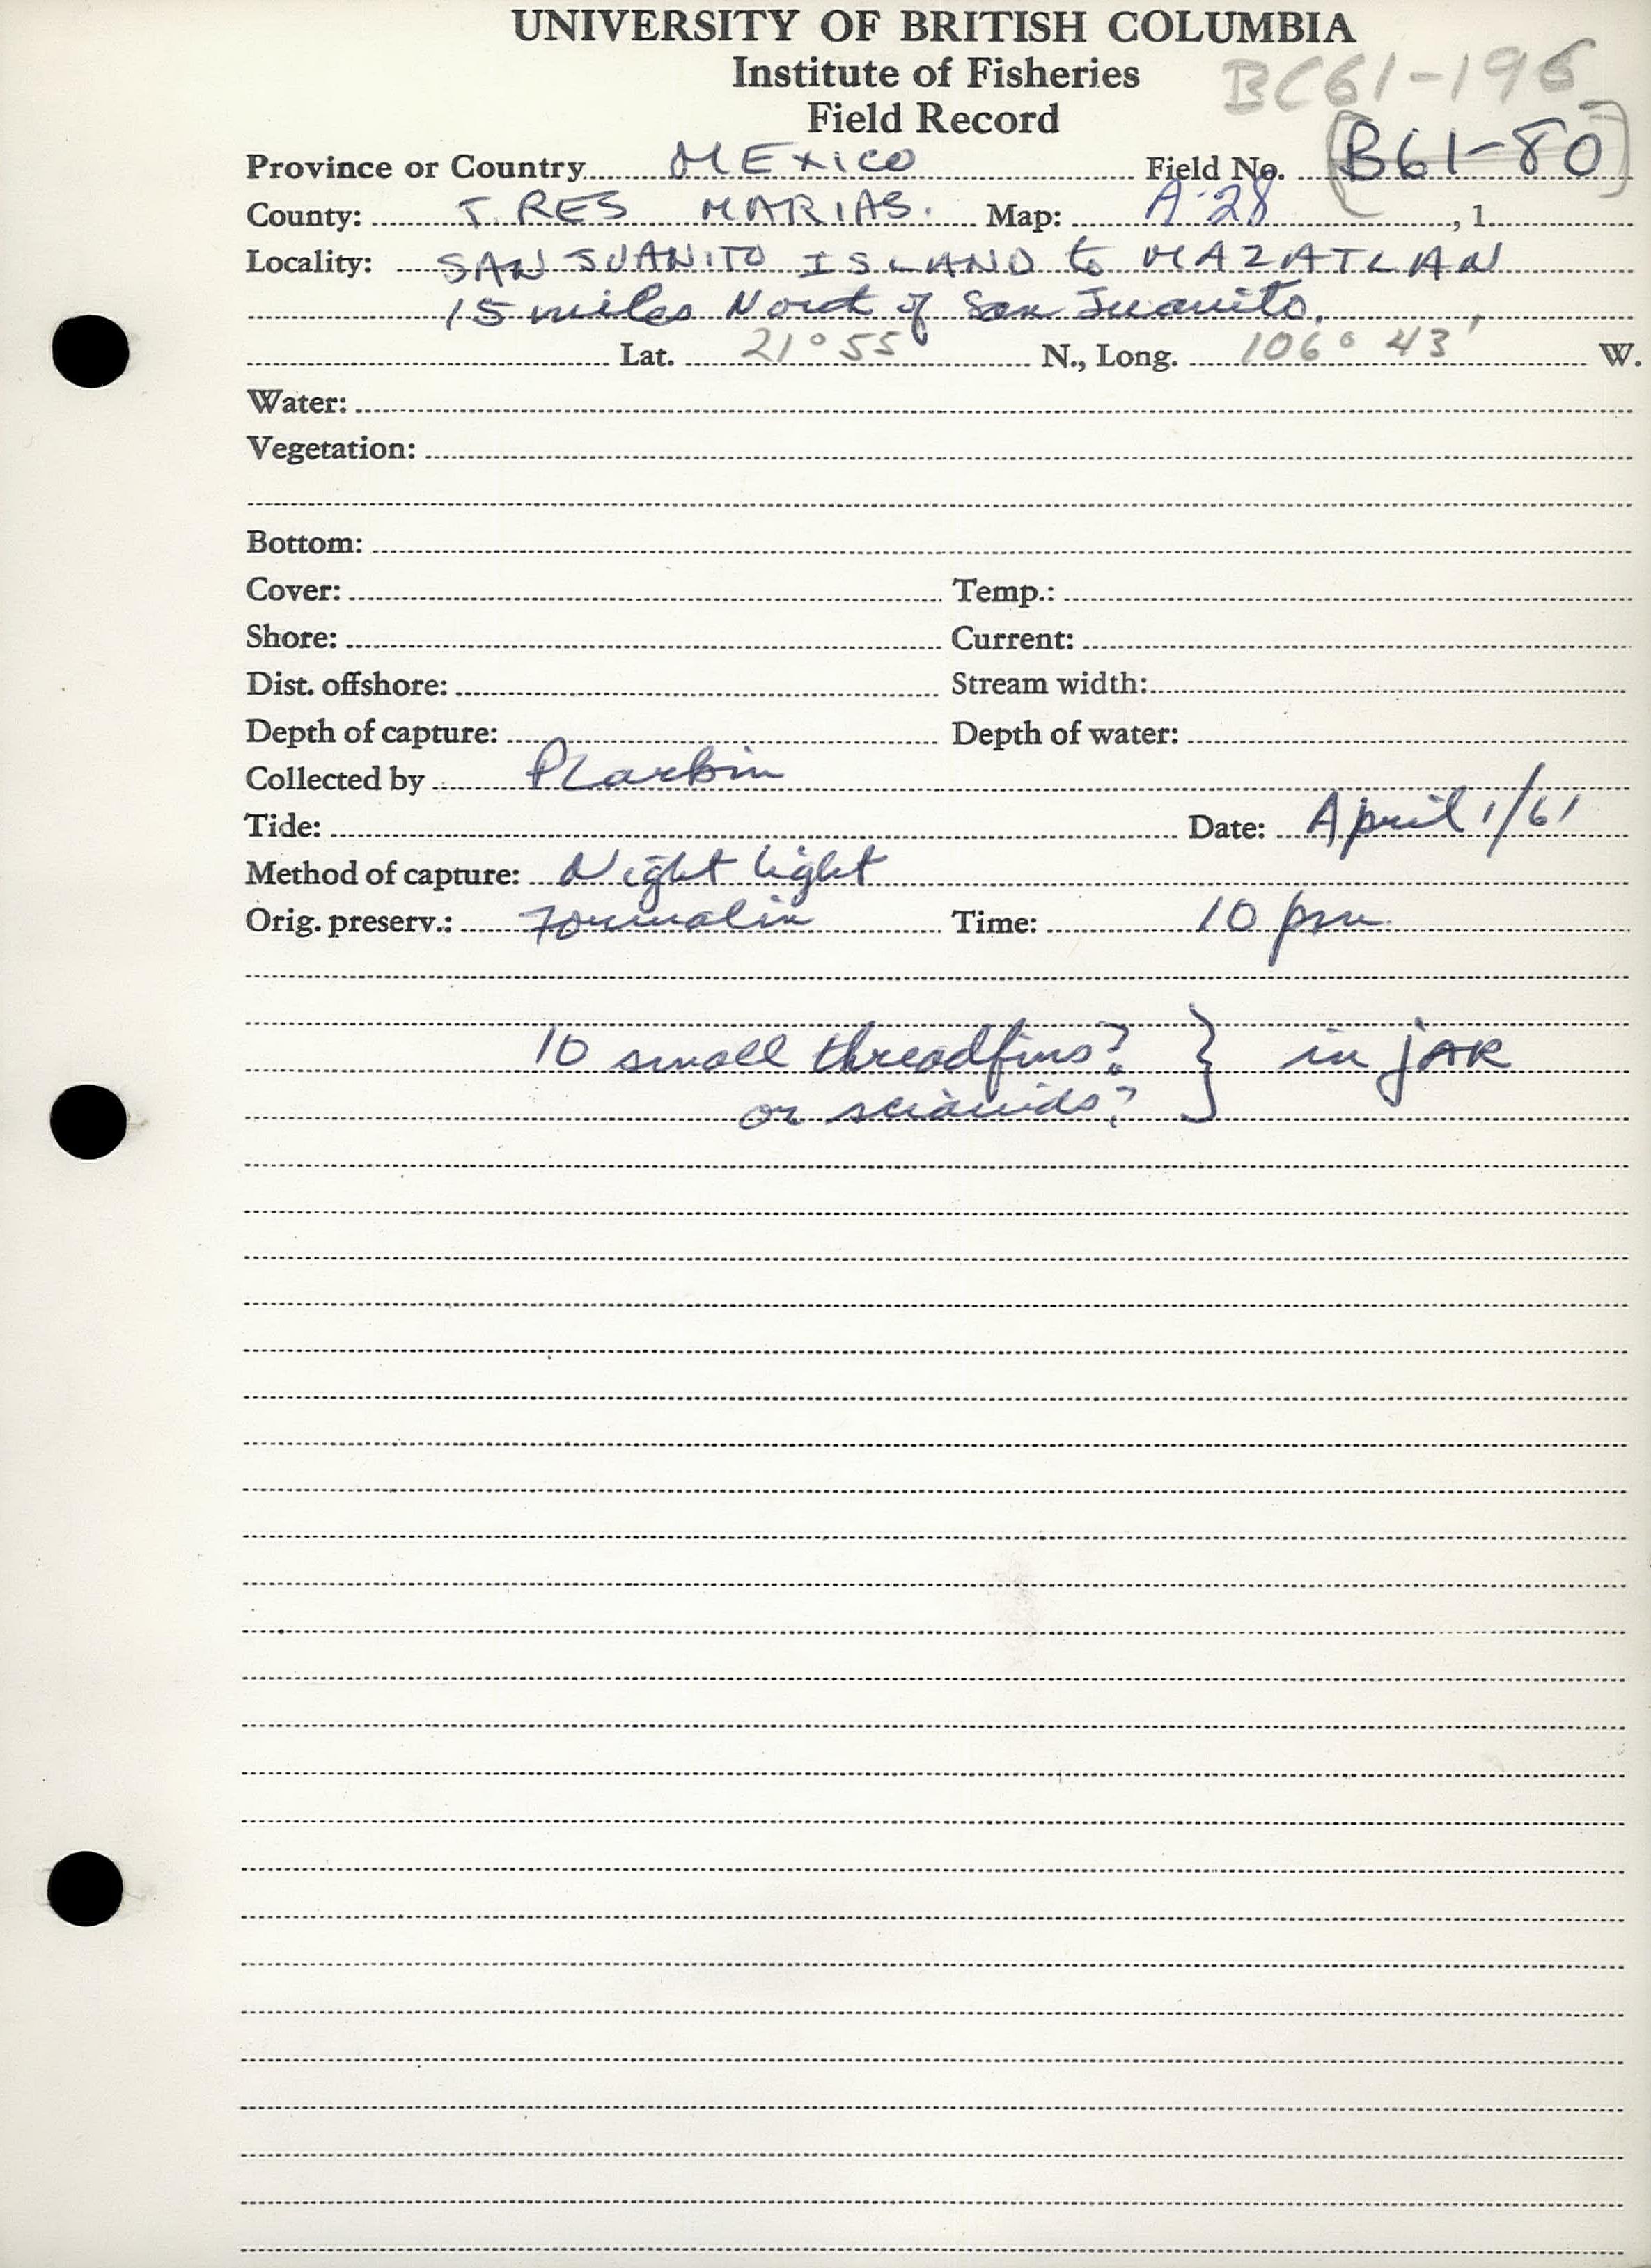 UNIVERSITY OF BRITISH COLUMBIA
Institute of Fisheries
BC61-196
Field Record
Province or Country MEXICO Field No. [B61-80]
County: TRES MARIAS. Map: A-28, 1
Locality: SAN JUANITO ISLAND to MAZATLAN
15 miles Nord of San Juanito.
Lat. 21° 55 N., Long. 106° 43' W.
Water:
Vegetation:
Bottom:
Cover: Temp.:
Shore: Current:
Dist. offshore: Stream width:
Depth of capture: Depth of water:
Collected by P Larkin
Tide: Date: April 1/61
Method of capture: Night light
Orig. preserv.: Formalin Time: 10 pm
10 small threadfins? } in jAR
or scianids?